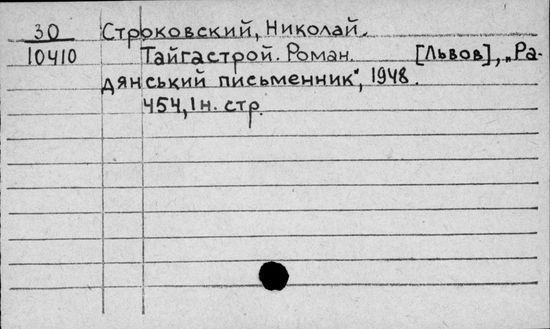 30 Строковский, Николай.
10410 Тайгастрой. Роман. [Львов], „Ра-
дянський письменник", 1948.
454, 1 н. стр.